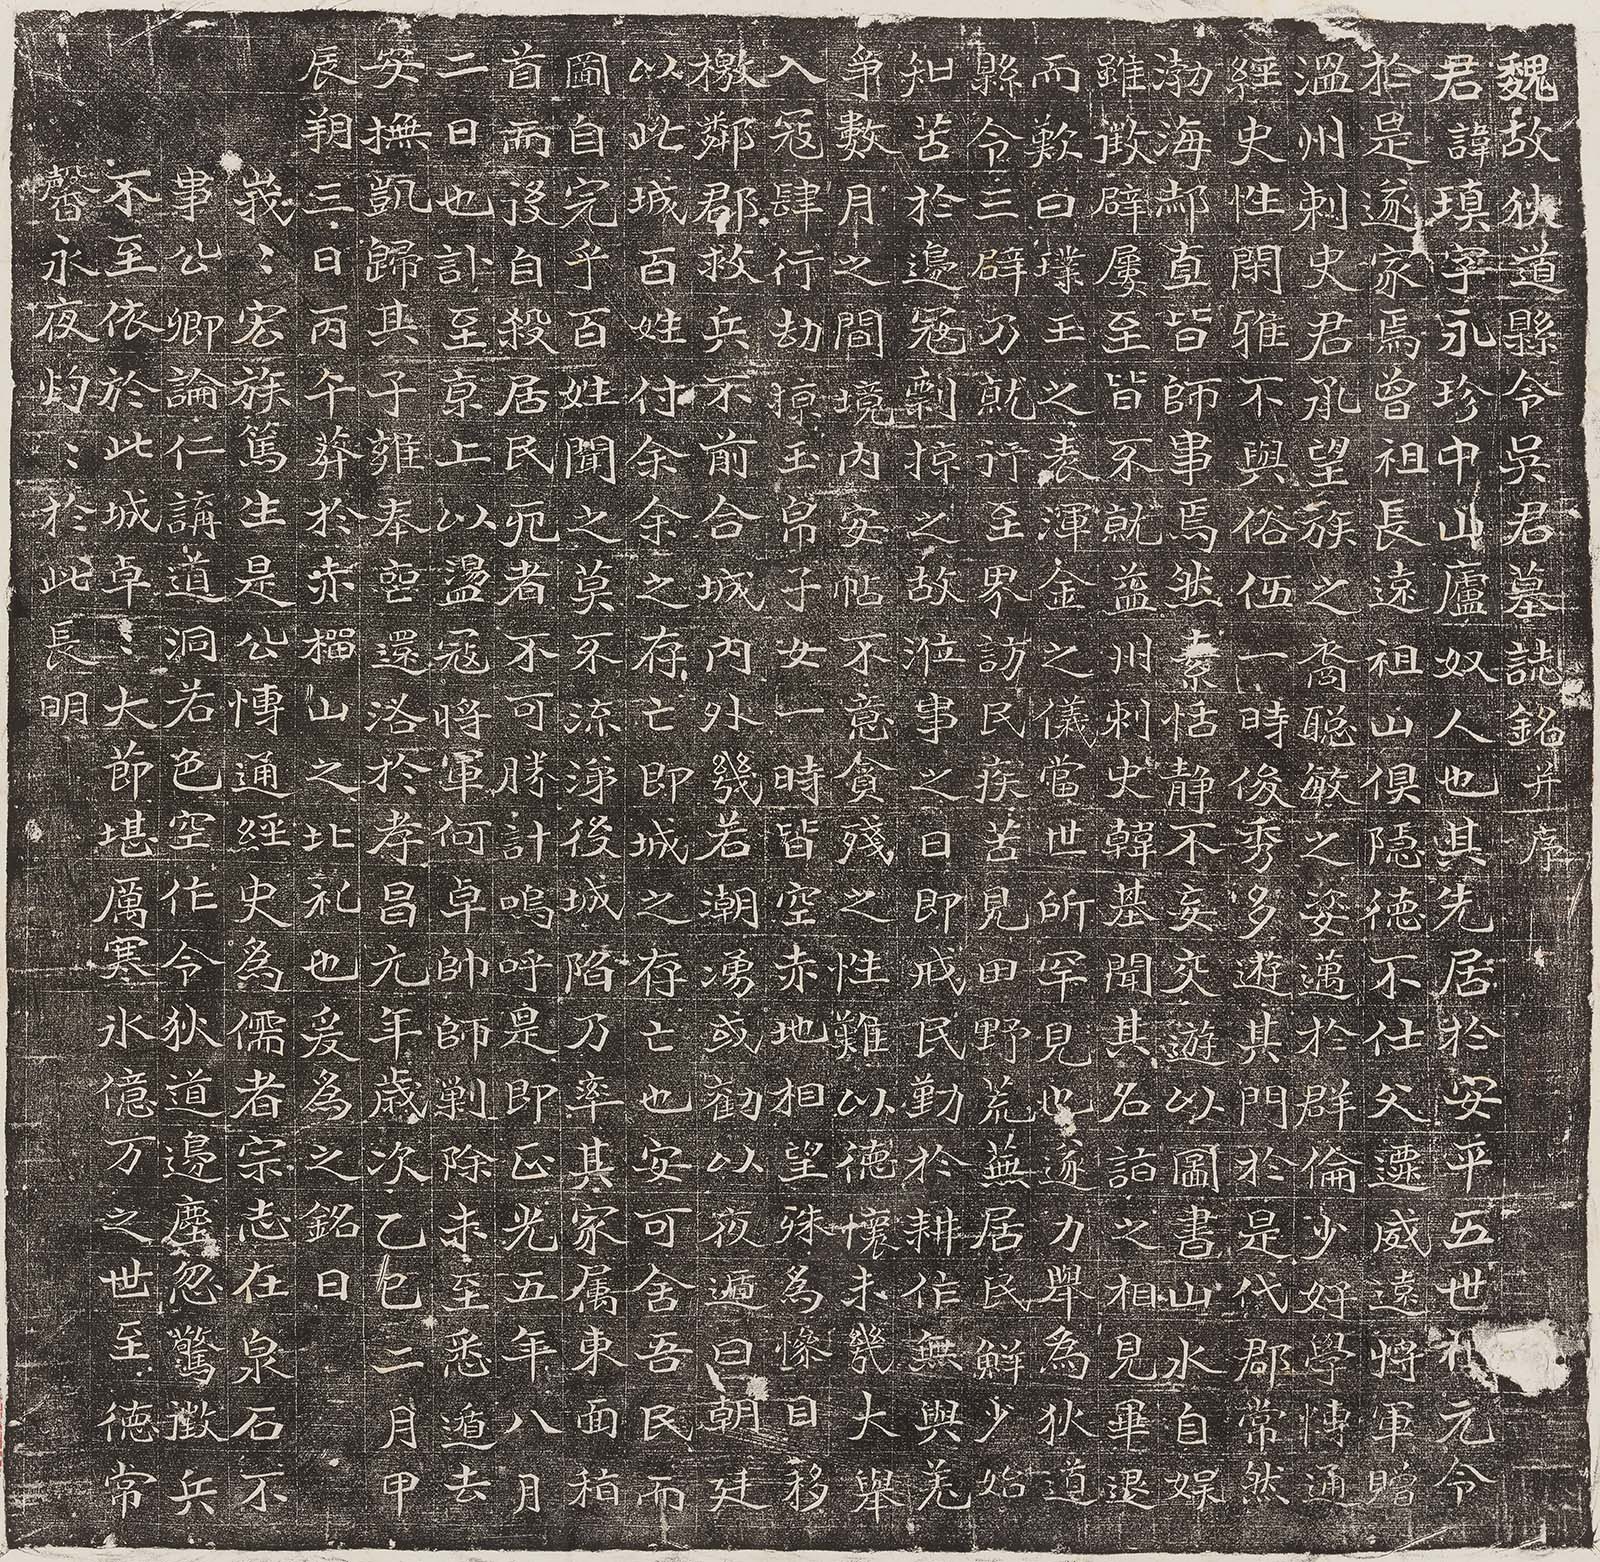 魏故狄道縣令吳君墓誌銘并序
君諱瑱字永珍中山廬奴人也其先居於安平五世祖元令
於是遂家焉曾祖長遠祖山俱隱德不仕父遷威遠將軍贈
溫州刺史君承望族之裔聰敏之姿邁於群倫少好學博通
經史性閑雅不與俗伍一時俊秀多遊其門於是代郡常然
渤海郝直皆師事焉然素恬静不妄交遊以圖書山水自娛
雖徵辟屢至皆不就益州刺史韓基聞其名詣之相見畢退
而歎曰璞玉之表渾金之儀當世所罕見也遂力舉為狄道
縣令三辟乃就行至界訪民疾苦見田野荒蕪居民鮮少始
知苦於邊寇剽掠之故涖事之日即戒民勤於耕作無與羌
爭數月之間境内安帖不意貪殘之性難以德懷未幾大舉
入寇肆行劫掠玉帛子女一時皆空赤地相望殊為慘目移
檄鄰郡救兵不前合城内外幾若潮湧或勸以夜遁曰朝廷
以此城百姓付余余之存亡即城之存亡也安可舍吾民而
圖自完乎百姓聞之莫不流涕後城陷乃率其家属東面稽
首而後自殺居民死者不可勝計嗚呼是即正光五年八月
二日也訃至京上以盪寇將軍何卓帥師剿除未至悉遁去
安撫凱歸其子雍奉喪還洛於孝昌元年歲次乙巳二月甲
辰朔三日丙午葬於赤櫂山之北礼也爰為之銘曰
峩〻宏族篤生是公博通經史為儒者宗志在泉石不
事公卿論仁講道洞若色空作令狄道邊塵忽驚徵兵
不至依於此城卓〻大節堪厲寒氷億万之世至德常
馨永夜灼〻於此長明